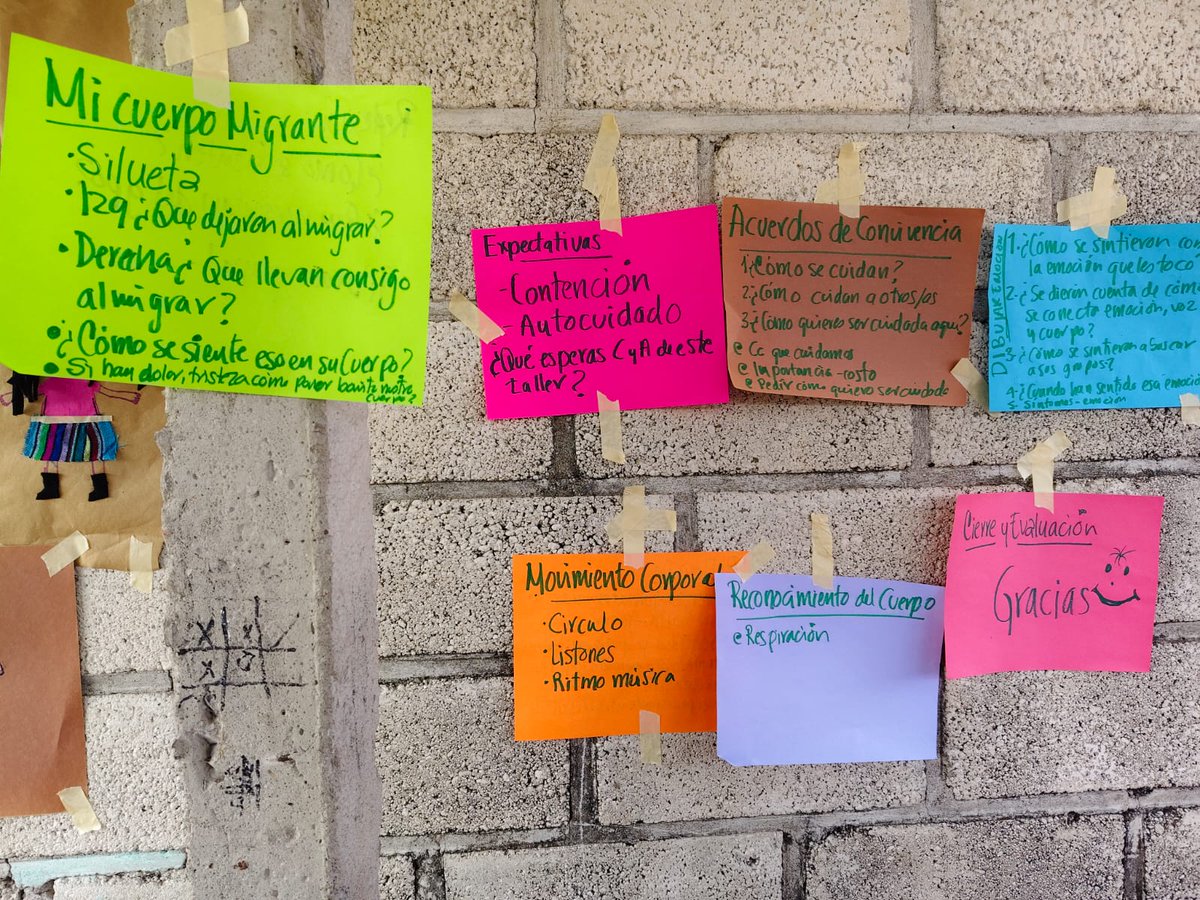 Mi cuerpo Migrante
• Silueta
• Izq ¿Que dejaron al migrar?
• Derecha ¿ Que llevan consigo
al migrar?
• ¿Cómo se siente eso en su Cuerpo?
• Si hay dolor, tristeza como poner bonito nuestro
cuerpo?
Expectativas
- Contención
- Autocuidado
¿Qué esperas C y A de este
taller?
Acuerdos de Convivencia
1 ¿Cómo se cuidan?
2 ¿Cómo cuidan a otros/as
3 ¿Cómo quieres ser cuidada aquí?
Lo que cuidamos
Importancia - costo
Pedir cómo quiero ser cuidado
DIBUJAR EMOCIÓN
1. ¿Cómo se sintieron con
la emoción que les tocó?
2. ¿Se dieron cuenta de cómo
se conecta emoción, voz
y cuerpo?
3. ¿Cómo se sintieron a buscar
a sus grupos?
4. ¿Cuando han sentido esa emoción
5. Síntomas - emoción
Movimiento Corporal
• Círculo
• Listones
• Ritmo música
Reconocimiento del Cuerpo
Respiración
Cierre y Evaluación
Gracias